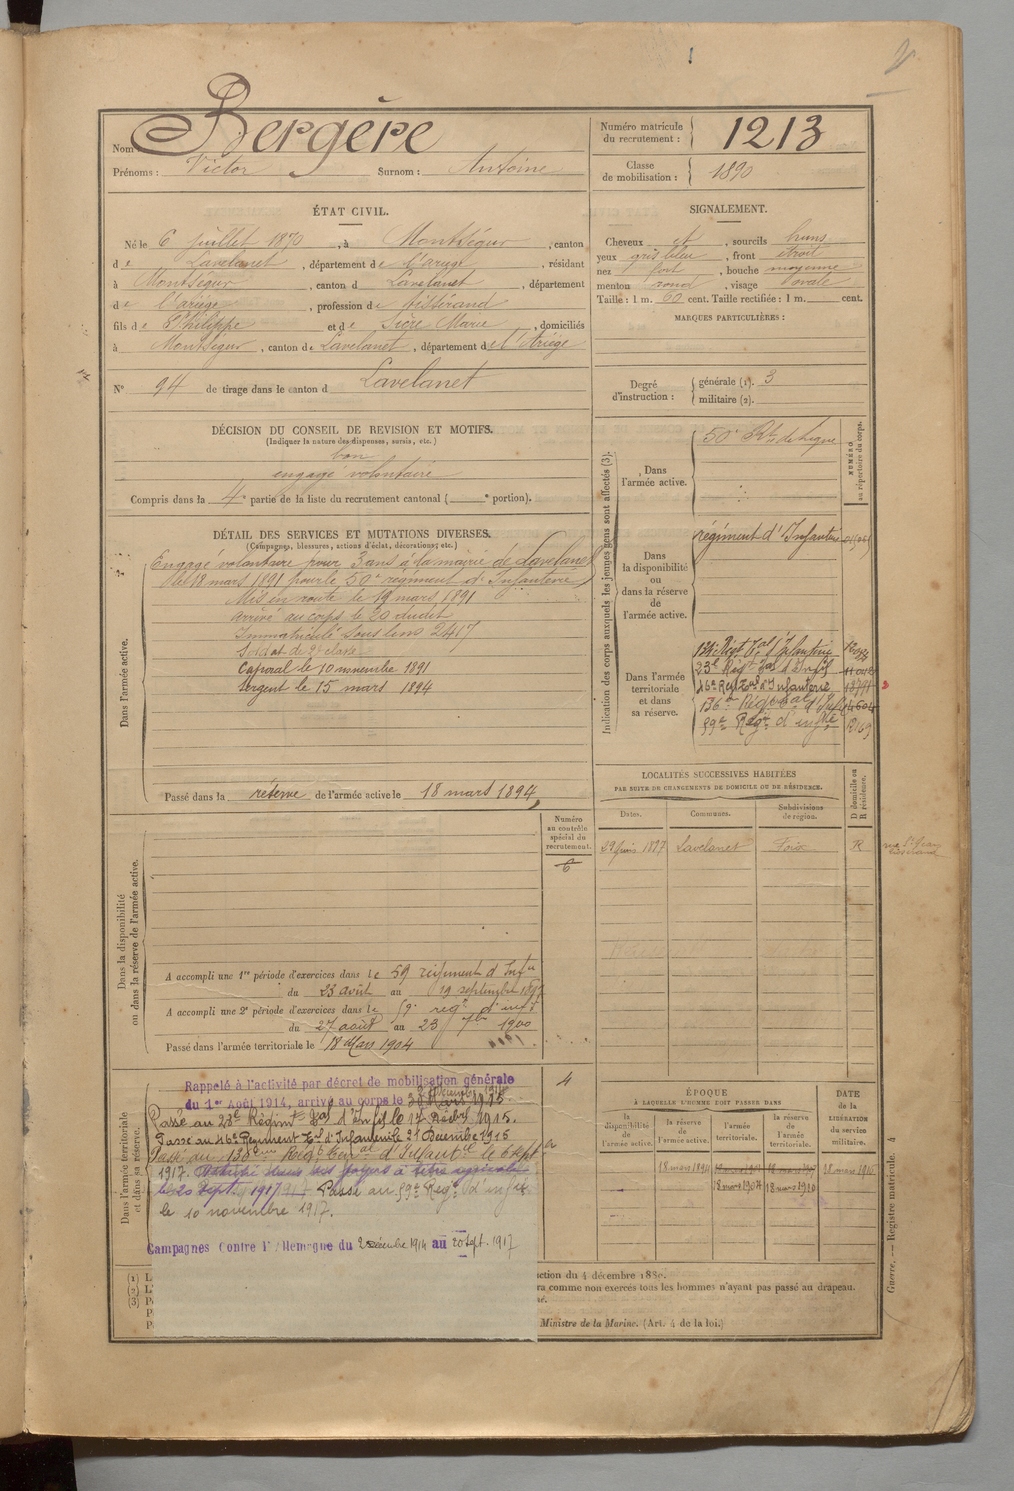 Nom : Bergère
Prénoms : Victor Surnom : Antoine
Numéro matricule du recrutement : 1213
Classe de mobilisation : 1890
ÉTAT CIVIL.
Né le 6 juillet 1870, à Montségur, canton
de Lavelanet, département de l'ariège, résidant
à Montségur, canton d Lavelanet, département
de l'ariège, profession de tisserand
fils de Philippe et de Sicre Marie, domiciliés
à Montségur, canton de Lavelanet, département de l'Ariège
N° 94 de tirage dans le canton d Lavelanet
SIGNALEMENT.
Cheveux et, sourcils bruns
yeux gris bleu, front étroit
nez fort, bouche moyenne
menton rond, visage ovale
Taille : 1 m. 60 cent. Taille rectifiée : 1 m. cent.
MARQUES PARTICULIÈRES :
Degré d'instruction : générale (1). 3
militaire (2).
DÉCISION DU CONSEIL DE REVISION ET MOTIFS.
(Indiquer la nature des dispenses, sursis, etc.)
bon
engagé volontaire
Compris dans la 4e partie de la liste du recrutement cantonal ( e portion).
DÉTAIL DES SERVICES ET MUTATIONS DIVERSES.
(Campagnes, blessures, actions d'éclat, décorations, etc.)
Dans l'armée active.
Engagé volontaire pour 3 ans à la mairie de Lavelanet
le 18 mars 1891 pour le 50e régiment d'Infanterie
Mis en route le 19 mars 1891
arrivé au corps le 20 dudit
Immatriculé sous le no 2417
Soldat de 2e classe
Caporal le 10 novembre 1891
Sergent le 15 mars 1894
Passé dans la réserve de l'armée active le 18 mars 1894
Indication des corps auxquels les jeunes gens sont affectés (3).
NUMÉRO au répertoire du corps.
Dans l'armée active.
50e Rt de ligne
Dans la disponibilité ou dans la réserve de l'armée active.
régiment d'Infanterie
Dans l'armée territoriale et dans sa réserve.
134e Régt Tal d'Infanterie
23e Régt Tal d'Infie
46e Regt Tal d'Infanterie
136e
59e Regt d'infie
LOCALITÉS SUCCESSIVES HABITÉES
PAR SUITE DE CHANGEMENTS DE DOMICILE OU DE RÉSIDENCE.
Dates. Communes. Subdivisions de région. D domicile ou R résidence.
Lavelanet Foix R
Numéro au contrôle spécial du recrutement.
6
Dans la disponibilité ou dans la réserve de l'armée active.
A accompli une 1re période d'exercices dans le 59 régiment d'Infie
du 23 août au 19 septembre
A accompli une 2e période d'exercices dans le 59e regt d'infie
du 27 août au 23 7bre 1900
Passé dans l'armée territoriale le 18 Mars 1904
Dans l'armée territoriale et dans sa réserve.
4
Rappelé à l'activité par décret de mobilisation générale
du 1er Août 1914, arrivé au corps le
Passé au 23e Régimt Tal d'Infie le 1915.
Passé au 46e Régiment Tal d'Infanterie 21 Decembre 1916
Passé au Régt d'Infantie le 6 Septbre
1917.
le 20 Sept. 1917 Passé au 59e Regt d'infie
le 10 novembre 1917.
Campagnes Contre l'Allemagne du 2 décembre 1914 au 20 Sept. 1917
ÉPOQUE
À LAQUELLE L'HOMME DOIT PASSER DANS
la disponibilité de l'armée active. la réserve de l'armée active. l'armée territoriale. la réserve de l'armée territoriale.
DATE de la LIBÉRATION du service militaire.
18 mars 1894
18 mars 1904 18 mars 1910
(1) L
(2) L'
(3) P
P
P
ction du 4 décembre 1889.
ra comme non exercés tous les hommes n'ayant pas passé au drapeau.
Ministre de la Marine. (Art. 4 de la loi.)
Guerre. — Registre matricule. 4